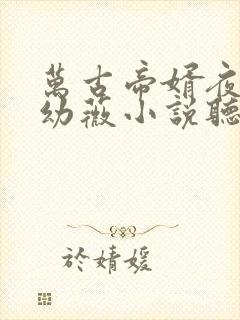 萬古帝婿夜
幼薇小説聽
於婧媛